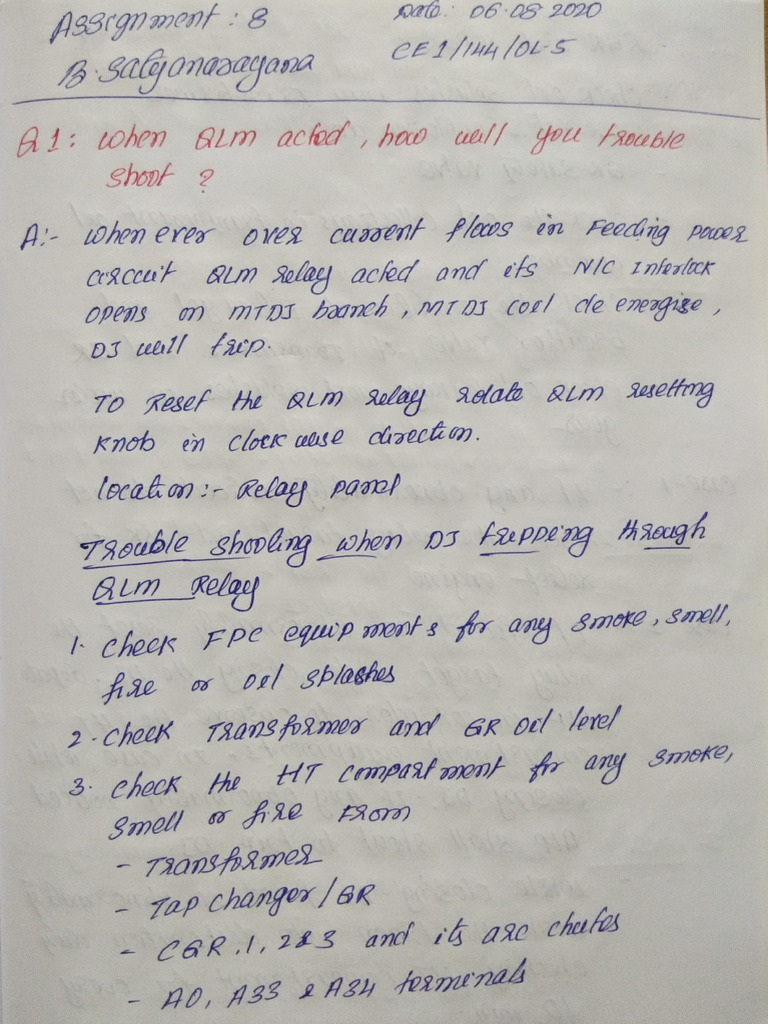 Assignment : 8 Date: 06.08.2020
B. Satyanarayana CE1/144/OL-5
Q1: When QLM acted, how will you trouble
shoot ?
A:- When ever over current flows in Feeding power
circuit QLM relay acted and its N/C Interlock
opens on MTDJ branch, MTDJ coil de energise,
DJ will trip.
To Reset the QLM relay rotate QLM resetting
knob in clock wise direction.
location:- Relay panel
Trouble shooting when DJ tripping through
QLM Relay
1. Check FPC equipments for any smoke, smell,
fire or oil splashes
2. Check Transformer and GR oil level
3. Check the HT compartment for any smoke,
smell or fire From
- Transformer
- Tap changer/GR
- CGR.1, 2&3 and its arc chutes
- A0, A33 & A34 terminals